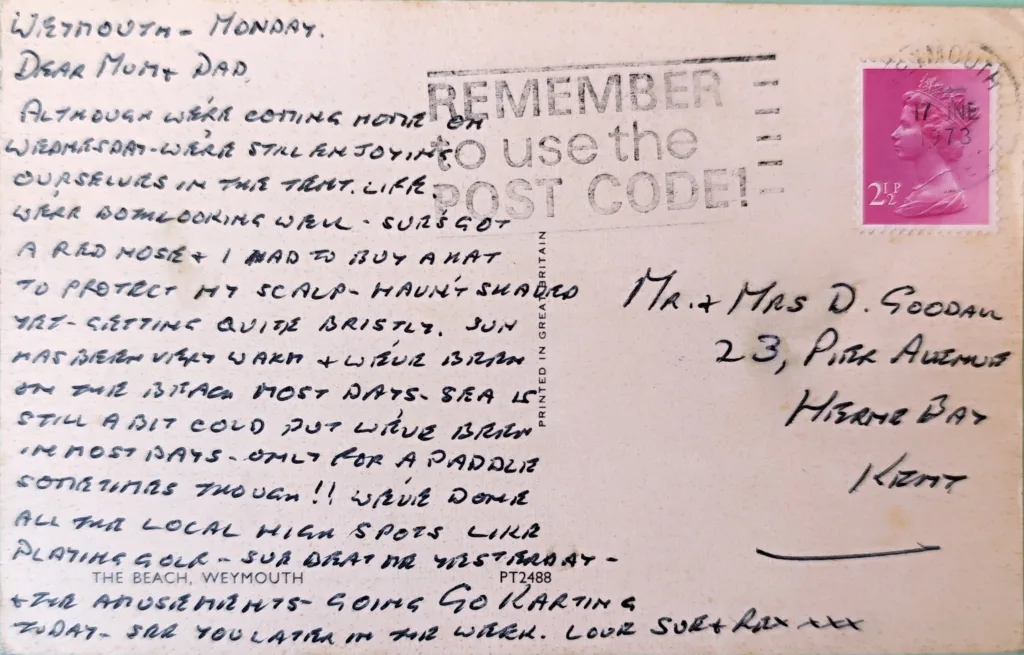 WEYMOUTH - MONDAY.
DEAR MUM + DAD,
ALTHOUGH WE'RE COMING HOME ON
WEDNESDAY - WE'RE STILL ENJOYING
OURSELVES IN THE TENT. LIFE
WE'RE BOTH LOOKING WELL - SUE'S GOT
A RED NOSE + I HAD TO BUY A HAT
TO PROTECT MY SCALP - HAVN'T SHAVED
YET - GETTING QUITE BRISTLY. SUN
HAS BEEN VERY WARM + WE'VE BEEN
ON THE BEACH MOST DAYS - SEA IS
STILL A BIT COLD BUT WE'VE BEEN
IN MOST DAYS - ONLY FOR A PADDLE
SOMETIMES THOUGH!! WE'VE DONE
ALL THE LOCAL HIGH SPOTS LIKE
PLAYING GOLF - SUE BEAT ME YESTERDAY -
+ THE AMUSEMENTS - GOING GO KARTING
TODAY - SEE YOU LATER IN THE WEEK. LOVE SUE + XXX
THE BEACH, WEYMOUTH
PT2488
PRINTED IN GREAT BRITAIN
REMEMBER
to use the
POST CODE!
WEYMOUTH
17 JNE
1973
2½P
MR. + MRS D. GOODALL
23, PIER AVENUE
HERNE BAY
KENT